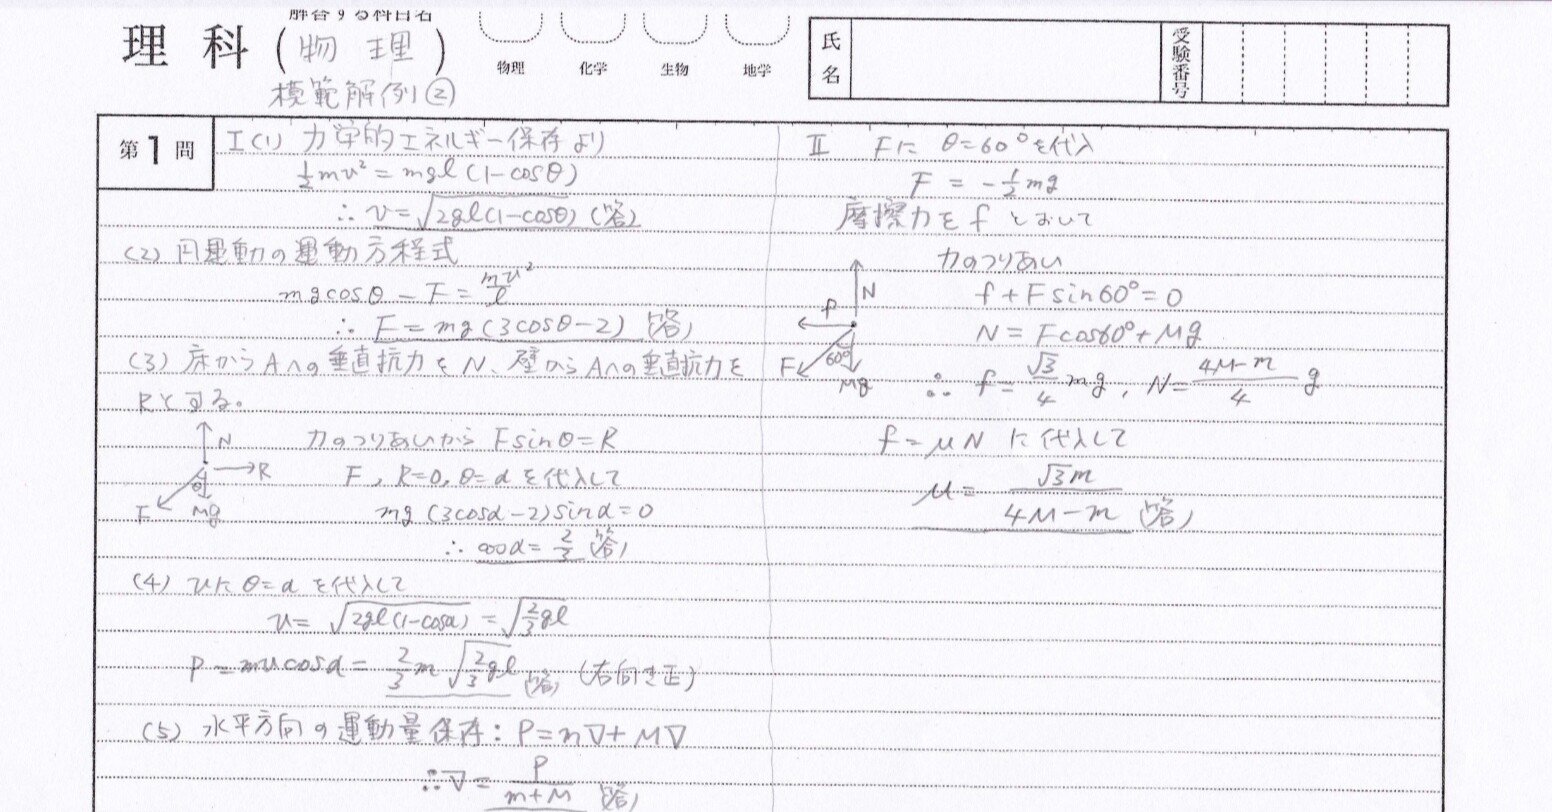 解答する科目名
理科(物理)
物理 化学 生物 地学
氏名
受験番号
模範解例②
第1問
I(1) 力学的エネルギー保存より
½mv² = mgl(1-cosθ)
∴ v=√2gl(1-cosθ) (答)
(2) 円運動の運動方程式
mgcosθ - F = mv²/l
∴ F = mg(3cosθ-2) (答)
(3) 床からAへの垂直抗力をN、壁からAへの垂直抗力を
Rとする。
N
R
θ
F
Mg
力のつりあいから Fsinθ=R
F, R=0, θ=αを代入して
mg(3cosα-2)sinα=0
∴ cosα=2/3 (答)
(4) vにθ=αを代入して
v= √2gl(1-cosα) = √2/3gl
P=mvcosα= 2/3m√2/3gl (答) (右向き正)
(5) 水平方向の運動量保存: P=mV+MV
∴V= P/m+M (答)
II Fにθ=60°を代入
F = -½mg
摩擦力をfとおいて
N
f
F
60°
Mg
力のつりあい
f+Fsin60°=0
N = Fcos60°+Mg
∴ f= √3/4 mg, N= 4M-m/4 g
f=μN に代入して
μ= √3m/4M-m (答)